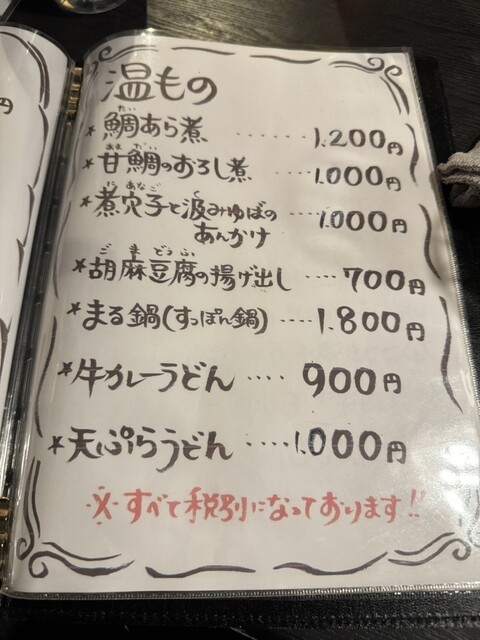 円
温もの
たい
*鯛あら煮 ‥‥‥ 1,200円
あまだい
*甘鯛のおろし煮 ‥‥ 1,000円
に あなご く
*煮穴子と汲みゆばの ‥‥ 1,000円
あんかけ
ごまどうふ
*胡麻豆腐の揚げ出し ‥‥ 700円
*まる鍋(すっぽん鍋) ‥‥ 1,800円
*牛カレーうどん ‥‥ 900円
*天ぷらうどん ‥‥ 1,000円
※すべて税別になっております!!